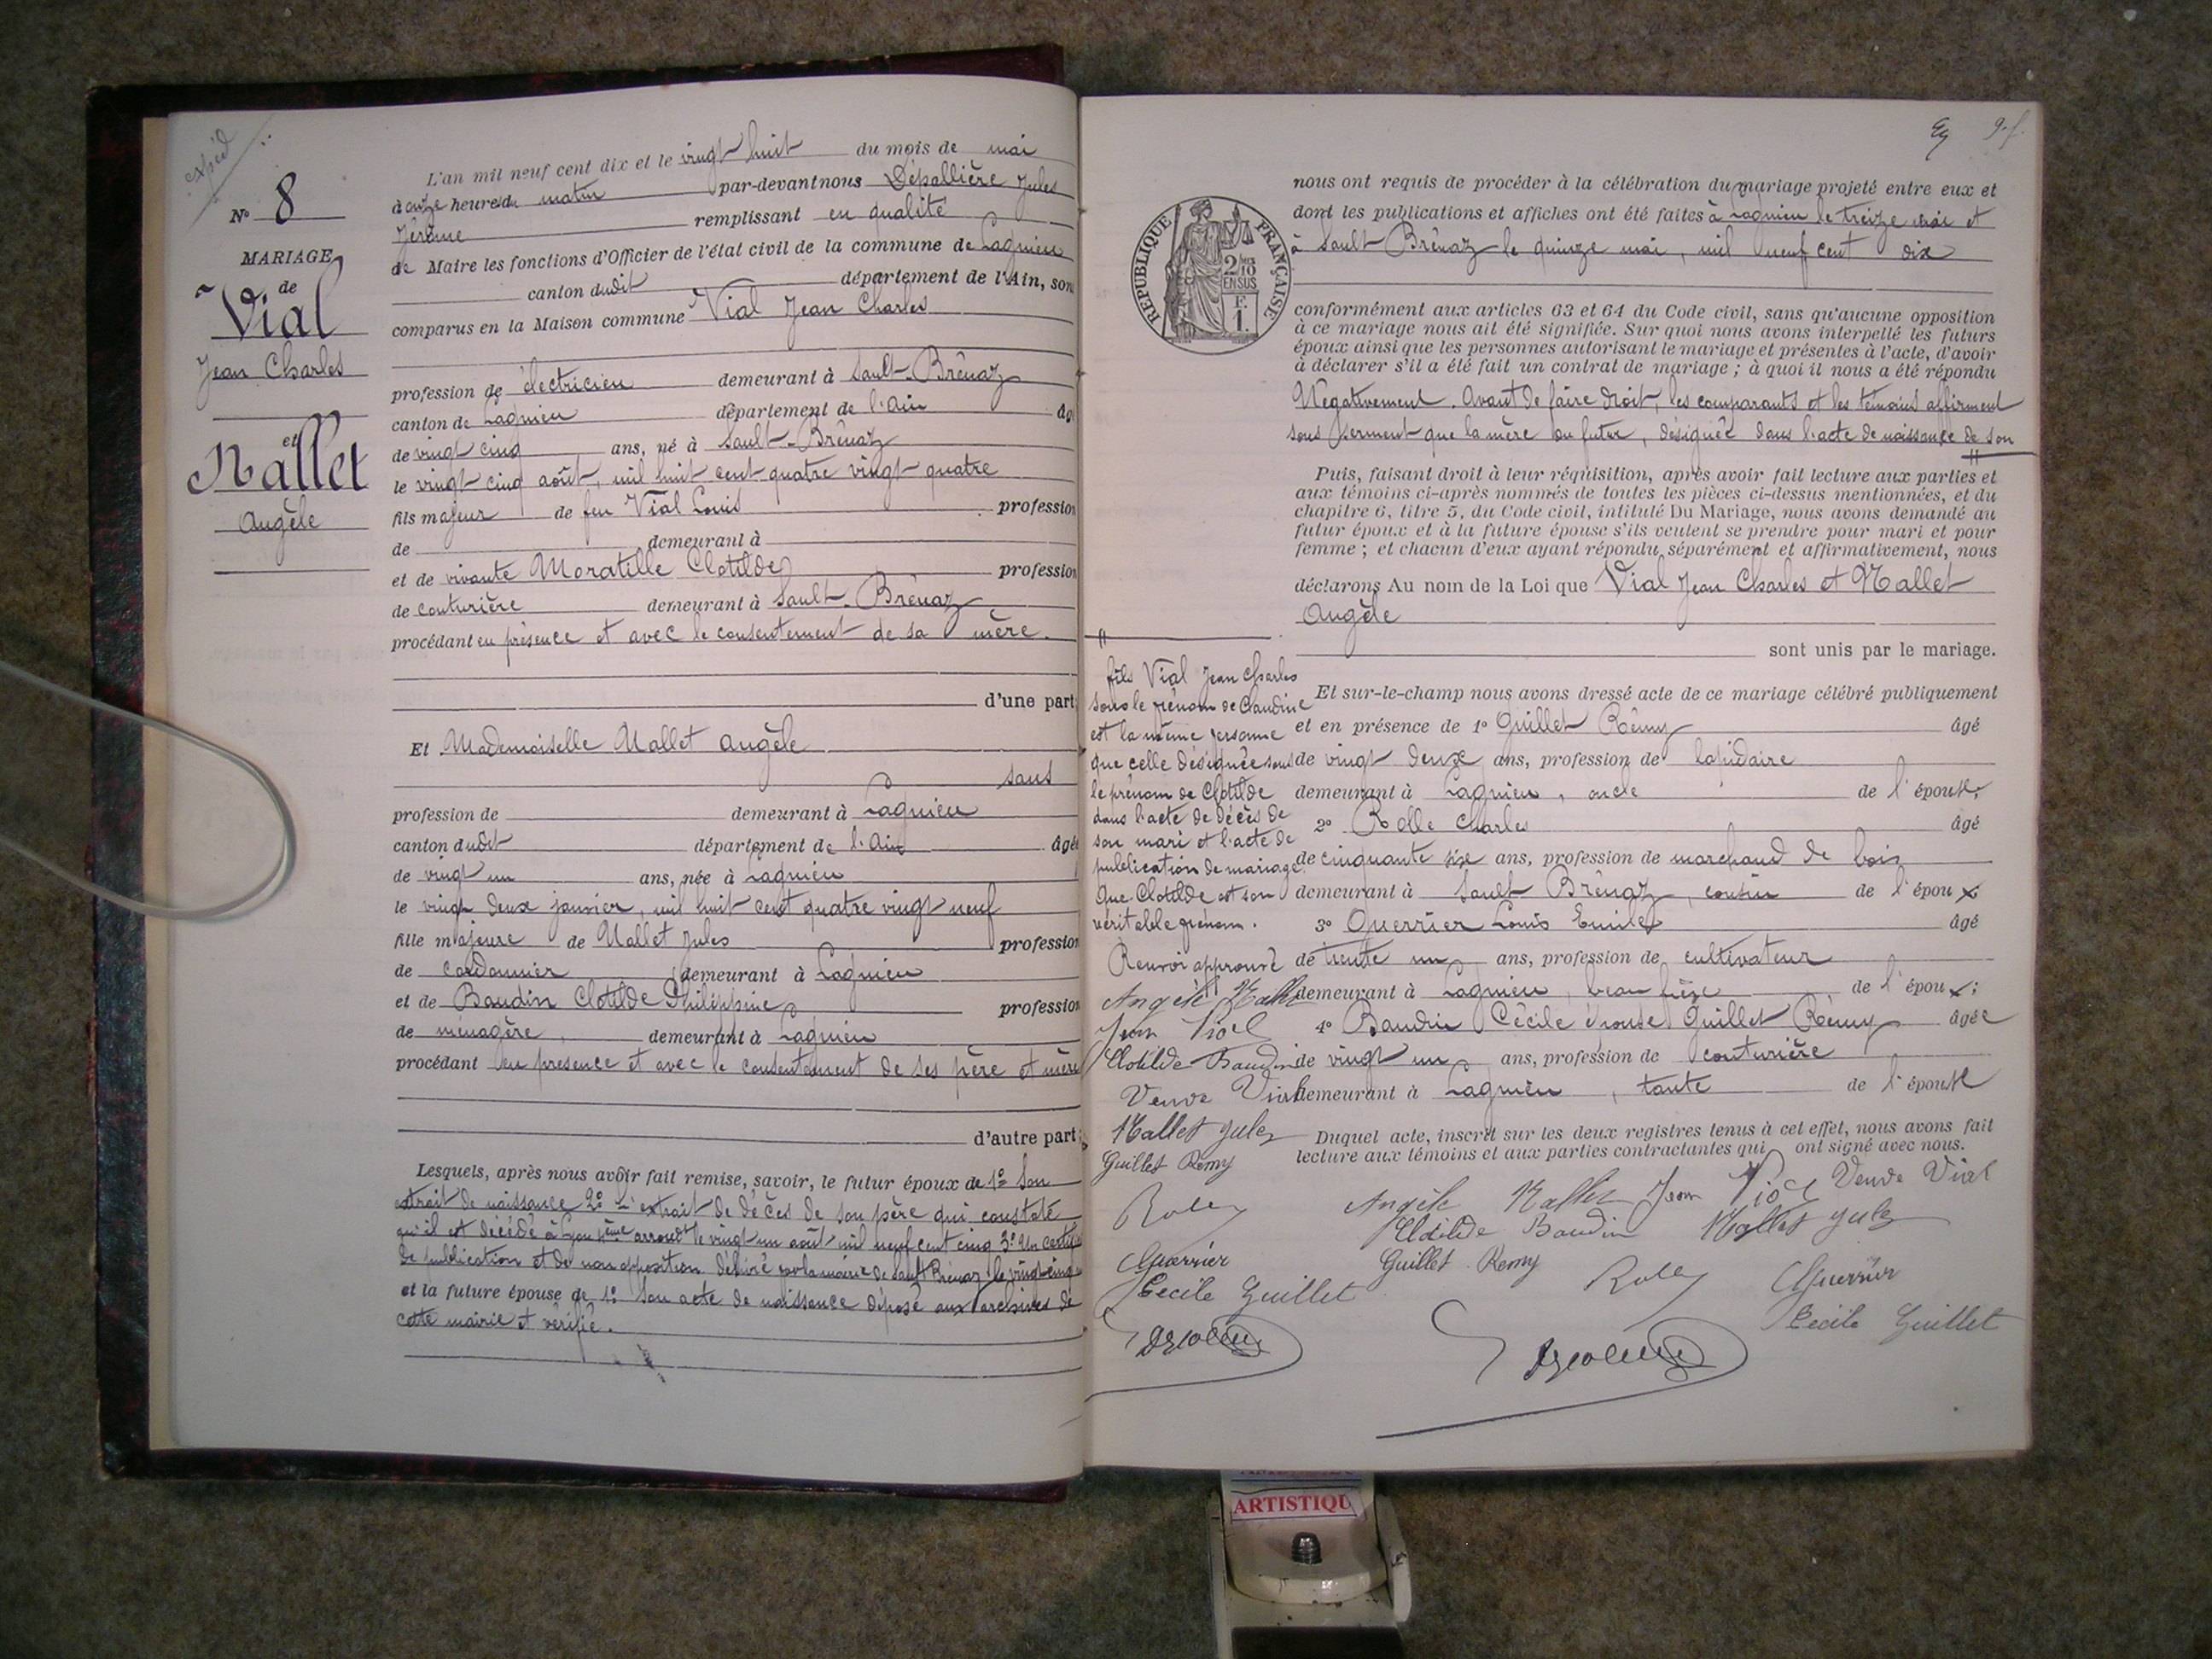 expéd
N° 8
MARIAGE
de
Vial
Jean Charles
et
Mallet
Angèle
L'an mil neuf cent dix et le vingt huit du mois de mai
à onze heures du matin par-devant nous Dépallière Jules
Jérôme remplissant en qualité
de Maire les fonctions d'Officier de l'état civil de la commune de Lagnieu
canton dudit département de l'Ain, son
comparus en la Maison commune Vial Jean Charles
profession de électricien demeurant à Sault-Brénaz
canton de Lagnieu département de l'Ain âgé
de vingt cinq ans, né à Sault-Brénaz
le vingt cinq août, mil huit cent quatre vingt quatre
fils majeur de feu Vial Louis profession
de demeurant à
et de vivante Moratille Clotilde profession
de couturière demeurant à Sault-Brénaz
procédant en présence et avec le consentement de sa mère.
d'une part
Et Mademoiselle Mallet Angèle
sans
profession de demeurant à Lagnieu
canton dudit département de l'Ain âgée
de vingt un ans, née à Lagnieu
le vingt deux janvier, mil huit cent quatre vingt neuf
fille majeure de Mallet Jules profession
de cordonnier demeurant à Lagnieu
et de Baudin Clotilde Philippine profession
de ménagère, demeurant à Lagnieu
procédant en présence et avec le consentement de ses père et mère
d'autre part;
Lesquels, après nous avoir fait remise, savoir, le futur époux de 1° Son
extrait de naissance 2° L'extrait de décès de son père qui constate
qu'il est décédé à Lyon arrondt le vingt un août mil neuf cent cinq 3° Un certif
de publication et de non opposition délivré par la mairie de Sault Brénaz le vingt cinq
et la future épouse de 1° Son acte de naissance déposé aux archives de
cette mairie et vérifié.
9 f.
RÉPUBLIQUE FRANÇAISE
2/10
EN SUS
F.
1.
nous ont requis de procéder à la célébration du mariage projeté entre eux et
dont les publications et affiches ont été faites à Lagnieu le treize mai et
à Sault-Brénaz le quinze mai, mil neuf cent dix
conformément aux articles 63 et 64 du Code civil, sans qu'aucune opposition
à ce mariage nous ait été signifiée. Sur quoi nous avons interpellé les futurs
époux ainsi que les personnes autorisant le mariage et présentes à l'acte, d'avoir
à déclarer s'il a été fait un contrat de mariage ; à quoi il nous a été répondu
Négativement. Avant de faire droit, les comparants et les témoins affirment
sous serment que la mère du futur, désignée dans l'acte de naissance de son
Puis, faisant droit à leur réquisition, après avoir fait lecture aux parties et
aux témoins ci-après nommés de toutes les pièces ci-dessus mentionnées, et du
chapitre 6, titre 5, du Code civil, intitulé Du Mariage, nous avons demandé au
futur époux et à la future épouse s'ils veulent se prendre pour mari et pour
femme ; et chacun d'eux ayant répondu séparément et affirmativement, nous
déclarons Au nom de la Loi que Vial Jean Charles et Mallet
Angèle
sont unis par le mariage.
fils Vial Jean Charles
sous le prénom de Claudine
est la même personne
que celle désignée sous
le prénom de Clotilde
dans l'acte de décès de
son mari et l'acte de
publication de mariage.
Que Clotilde est son
véritable prénom.
Renvoi approuvé
Angèle Mallet
Jean Vial
Clotilde Baudin
Veuve Vial
Mallet Jules
Guillet Remy
Rolle
Guerrier
Cécile Guillet
Et sur-le-champ nous avons dressé acte de ce mariage célébré publiquement
et en présence de 1° Guillet Rémy âgé
de vingt deux ans, profession de lapidaire
demeurant à Lagnieu, oncle de l'épouse;
2° Rolle Charles âgé
de cinquante six ans, profession de marchand de bois
demeurant à Sault Brénaz, cousin de l'époux
3° Guerrier Louis Emile âgé
de trente un ans, profession de cultivateur
demeurant à Lagnieu, beau frère de l'époux;
4° Baudin Cécile épouse Guillet Rémy âgée
de vingt un ans, profession de couturière
demeurant à Lagnieu, tante de l'épouse
Duquel acte, inscrit sur les deux registres tenus à cet effet, nous avons fait
lecture aux témoins et aux parties contractantes qui ont signé avec nous.
Angèle Mallet Jean Vial Veuve Vial
Clotilde Baudin Mallet Jules
Guillet Remy Rolle Guerrier
Cécile Guillet
ARTISTIQU